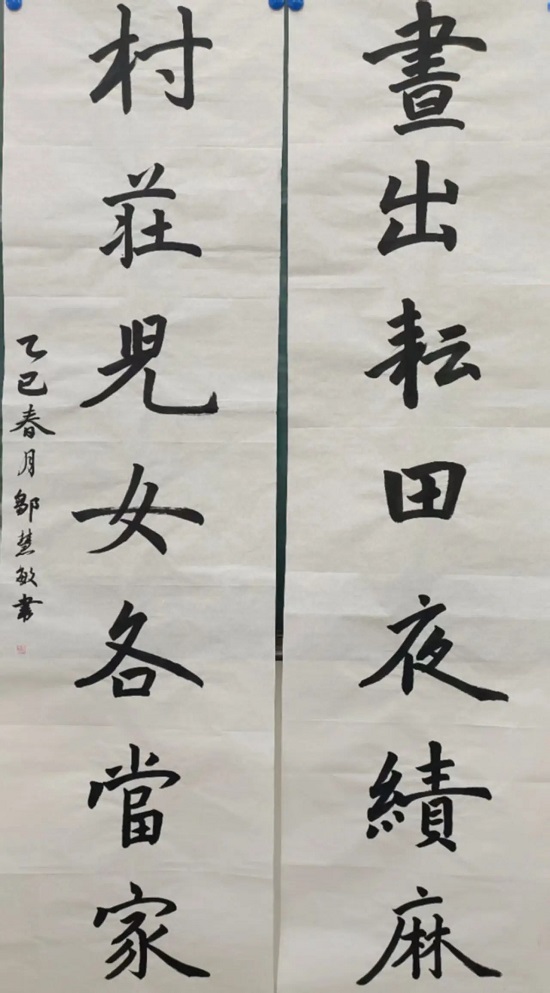 晝出耘田夜績麻
村莊児女各當家
乙巳春月鄒慧敏書